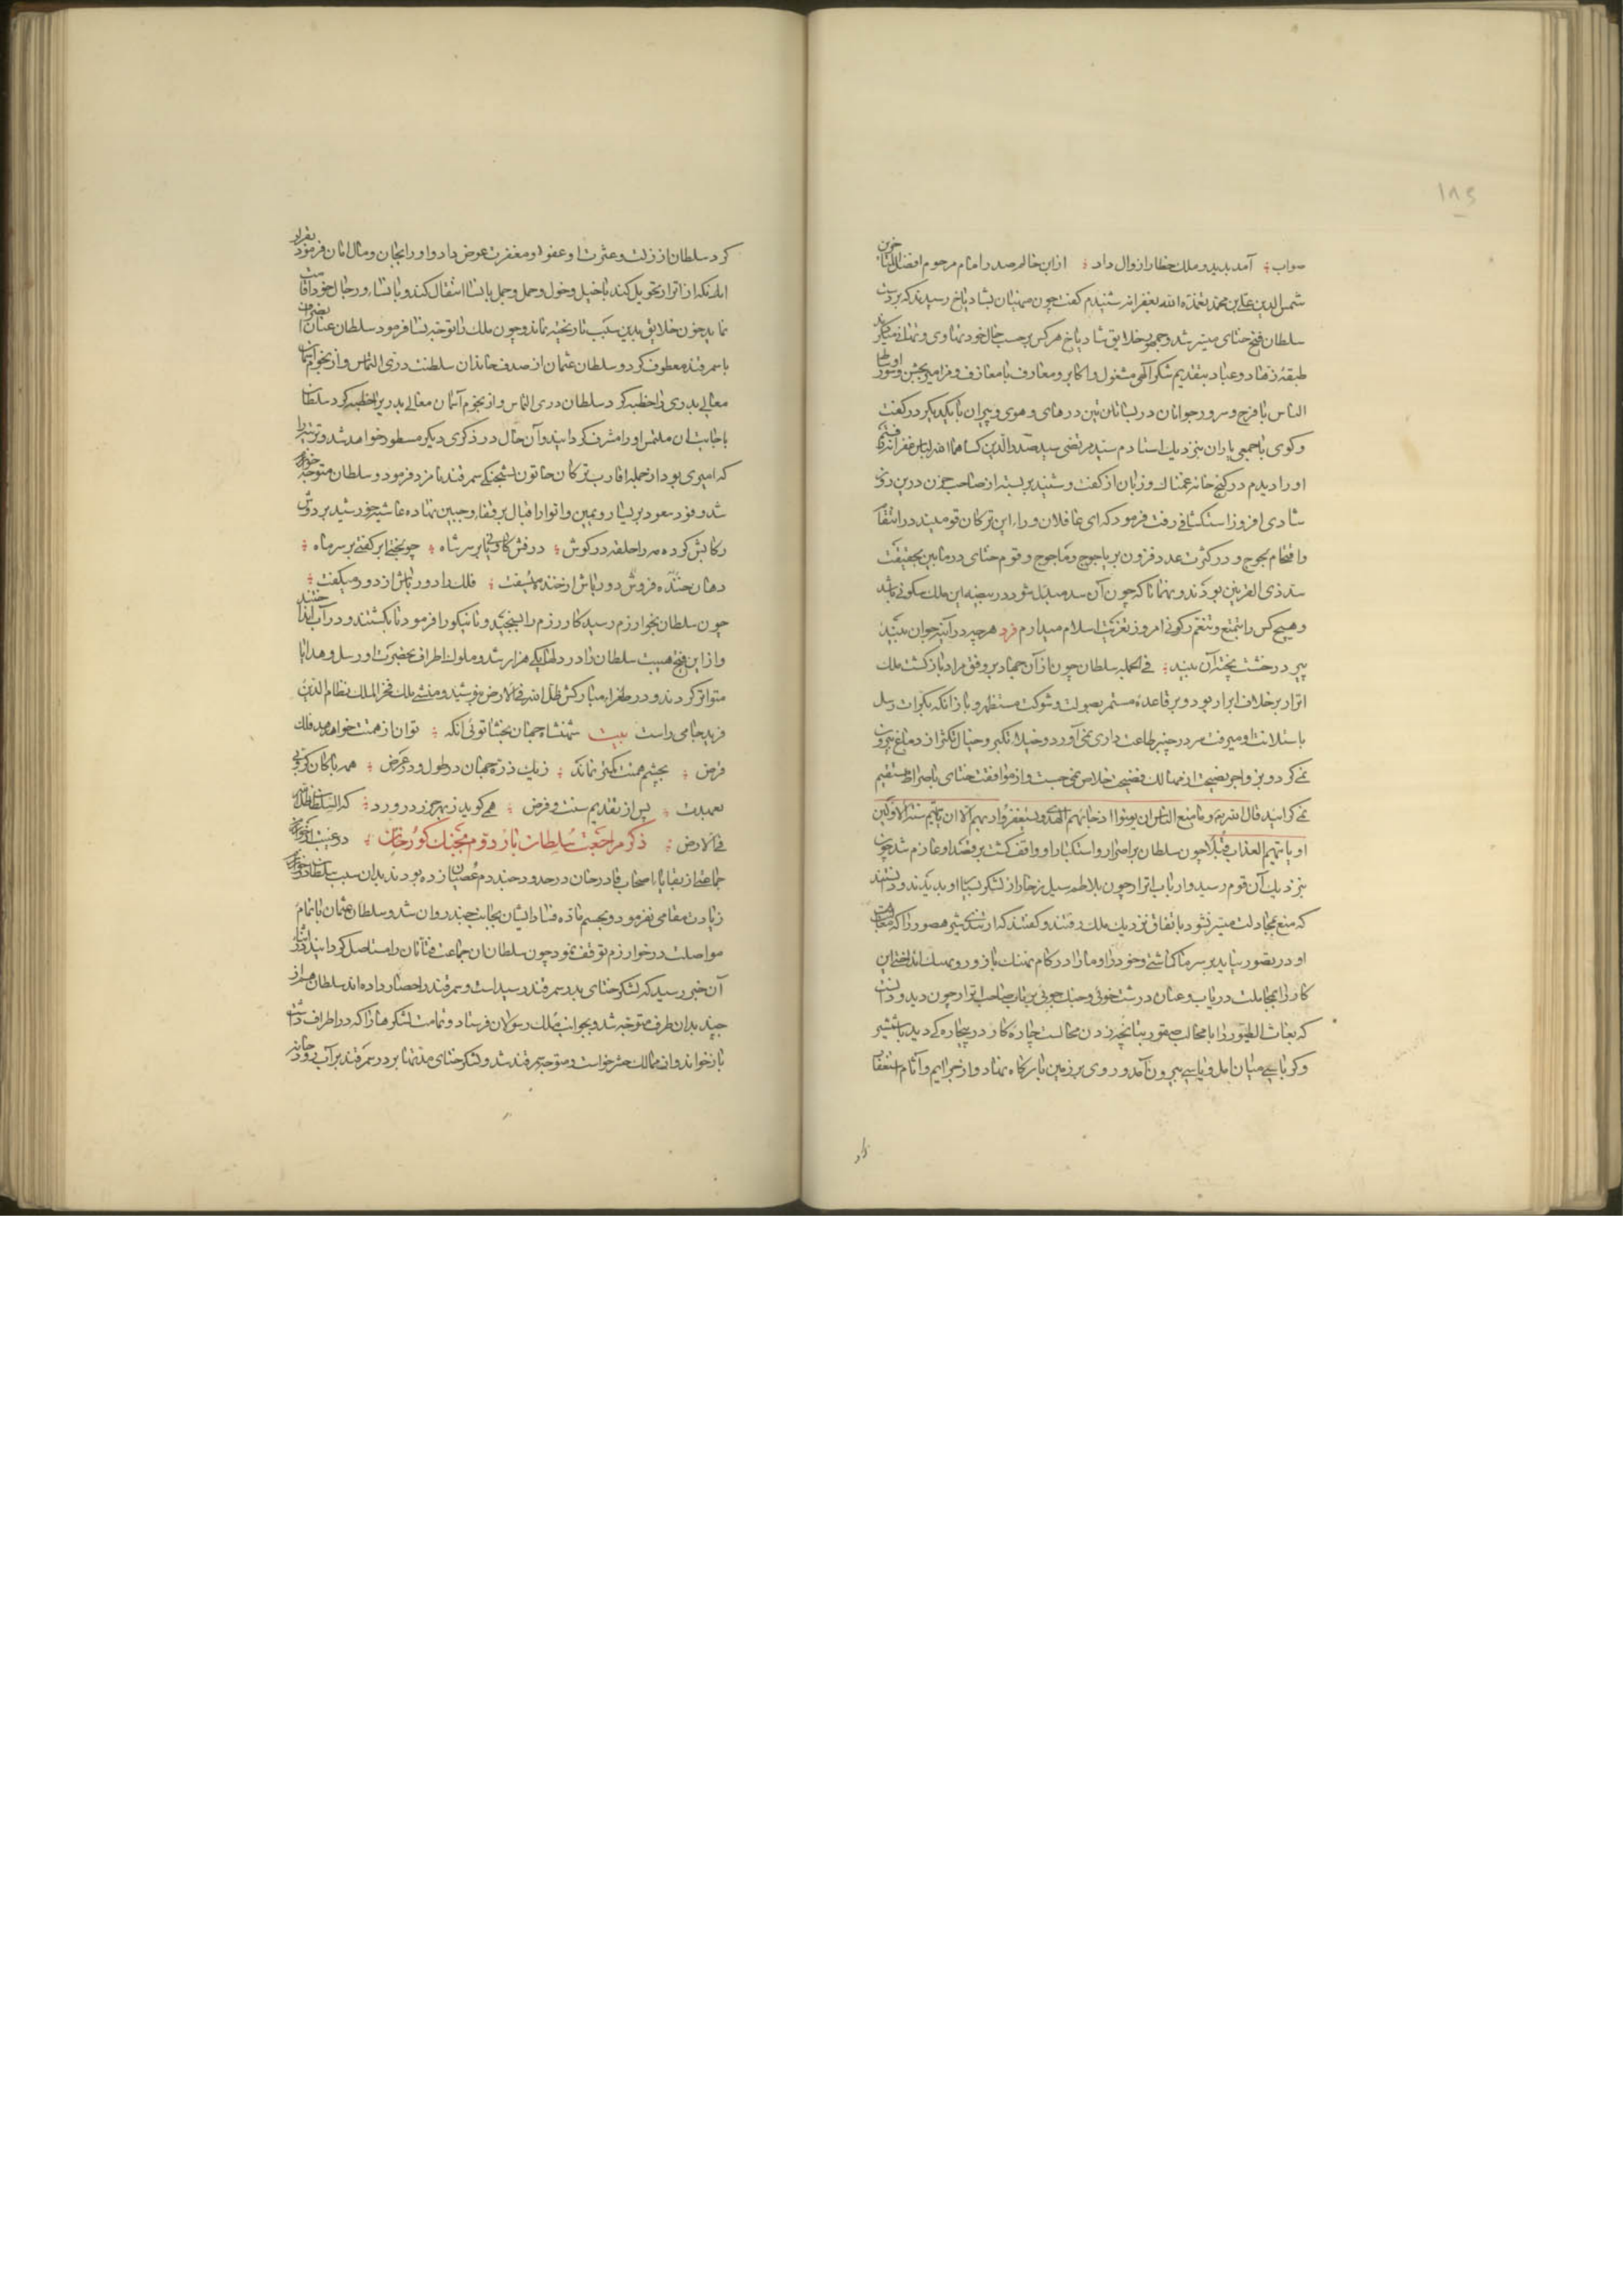 ۱۸۹
صواب آمد بدید و ملک خطا را زوال داد از ابن خالم صدر امام مرحوم افضل المتأخرین
شمس الدین علی بن محمد تغمده الله بغفرانه شنیدم که گفت چون مبشران بشادیاخ رسیدند که بر دست
سلطان فتح ختای میسر شد و جمهور خلایق شادیاخ هرکس بر حسب حال خود تهادی و تهانی میکردند
طبقه زهاد و عباد بتقدیم شکر الهی مشغول و اکابر و معارف با معازف و مزامیر بجشن و سور و اوساط
الناس با فرح و سرور جوانان در بساتین در های و هوی و پیران با یکدیگر در گفت
و گوی با جمعی یاران بنزدیک استادم سید مرتضی سید صدرالدین کساهما الله لباس غفرانه رفتم
او را دیدم در کنج خانه غمناک و زبان از گفت و شنید بر بسته از صاحب حزن درین روز
شادی افزوز استکشافی رفت فرمود که ای غافلان وراء این ترکان قومیند در انتقام
و اقتحام لجوج و در کثرت عدد فزون بر یاجوج و ماجوج و قوم ختای در مابین بحقیقت
سد ذی القرنین بودند و نهمانا که چون آن سد مبدل شود در بیضه این ملک سکونی باشد
و هیچ کس را تمتع و تنعم رکونی امروز تعزیت اسلام میدارم فرد هر چه در آینه جوان بیند
پیر در خشت پخته آن بیند فی الجمله سلطان چون از آن جهاد بر وفق مراد بازگشت ملک
اترار بر خلاف ابرار بود و بر قاعده مستمر بصولت و شوکت مستظهر و بازانکه بکرات رسل
باستلانت او میرفت سر در چنبر طاعت داری نمی آورد و خیلاء تکبر و خیال تکثر از دماغ بیرون
نمی کرد و بزواجر نصیحت از مهالک فضیحت خلاص نمی جست و از موافقت ختای با صراط مستقیم
نمی گرایید قال الله تع و ما منع الناس ان یومنوا اذ جاءهم الهدی و یستغفروا ربهم الا ان یاتیهم سنة الاولین
او یاتیهم العذاب قبلا چون سلطان بر اصرار و استکبار او واقف گشت بر قصد او عازم شد چون
بنزدیک آن قوم رسید و ارباب اترار چون تلاطم سیل زخار از لشکر بسیار او بدیدند و دانستند
که منع بمجادلت میسر نشود باتفاق نزدیک ملک رفتند و گفتند که ار تندی شیر هصور را که مقاومت
او در تصور نیاید بر سر ما کماشتی و خود را و ما را در کام نهنگ با زور و مسک انداختی این
کار را بمجاملت دریاب و عنان درشت خوئی و جنگ جوئی بر تاب صاحب اترار چون دید و دانست
که بغاث الطیور را با مخالب صقور پنجه زدن محالست چاره کار در بیچارگی دید با شمشیر
و کرباسی میان امل و یاس بیرون آمد و روی بر زمین بارگاه نهاد و از جرائم و آثام استغفار
کرد سلطان از زلت و عثرت او عفو و مغفرت عوض داد و او را بجان و مال امان فرمود بقرار
آنکه از اترار تحویل کند با خیل و خول و حمل و جمل با نسا انتقال کند و با نسا و رجال خود اقامت
نماید چون خلایق بدین سبب نارنجیه ماند و چون ملک را توجه بنسا فرمود سلطان عنان انصراف
با سمرقند معطوف کرد و سلطان عثمان از صدف خاندان سلطنت دری التماس و از نجوم آسمان
معالی بدری را خطبه کرد سلطان
باجابت آن ملتمس او را مشرف گردانید و آن حال در ذکری دیگر مسطور خواهد شد و ترتیه را
که امیری بود از جمله اقارب ترکان خاتون بشحنگی سمرقند نامزد فرمود و سلطان متوجه خوارزم
شد وفود سعود بر یسار و یمین و انوار اقبال بر قفا و جبین نهاده غاشیه خورشید بر دوش
رکابش کرده مه را حلقه در گوش درفش کاویانی بر سر شاه چو بختی ابر کفتی بر سر ماه
دهان خنده فروش دورباش از خنده میسفت فلک را دورباش از دور میگفت
چون سلطان بخوارزم رسید
و از این فتح هیبت سلطان را در دلها یکی هزار شد و ملوک اطراف بحضرت او رسل و هدایا
متواتر کردند و در طغراء مبارکش ظل الله فی الارض بنوشتند و منشی ملک فخر الملک نظام الدین
فرید جامی راست بیت شهنشاه جهان بخشا توئی آنکه توان از همت خواهد فلک
قرض بچشم همت گیتی نماند ز یک ذره جهان در طول و در عرض همه پاکان کروبی
تعبدت پس از تقدیم سنت و فرض همی گوید ز بهر حرز در ورد که السلطان ظل الله
فی الارض ذکر مراجعت سلطان بار دوم بجنگ کورخان در غیبت او از خوارزم
جماعتی از بقایاء اصحاب قادرخان در حدود جند دم عصیان زده بودند بدان سبب سلطان در خوارزم
زیادت مقامی نفرمود و بحسم ماده فساد ایشان بجانب جند روان شد و سلطان عثمان باتمام
مواصلت در خوارزم توقف نمود چون سلطان آن جماعت فتانان را مستاصل گردانید در اثناء
آن خبر رسید که لشکر ختای بدر سمرقند رسیده است و سمرقند را حصار داده اند سلطان هم از
جند بدان طرف متوجه شد و بجوانب ملک رسولان فرستاد و تمامت لشکرها را که در اطراف داشت
باز خواند و از ممالک حشر خواست و متوجه سمرقند شد و لشکر ختای مدتها بر در سمرقند بر آب رودخانه